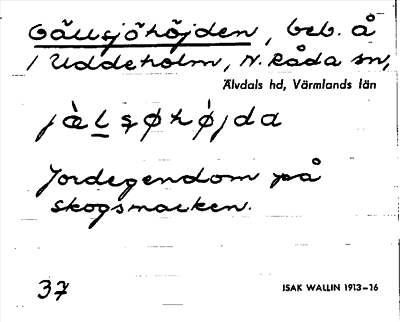 Gällsjöhöjden, beb. å
1 Uddeholm, N. Råda sn,
Älvdals hd, Värmlands län
jæ̀lşøhǿjda
Jordegendom på
skogsmarken.
37
ISAK WALLIN 1913–16